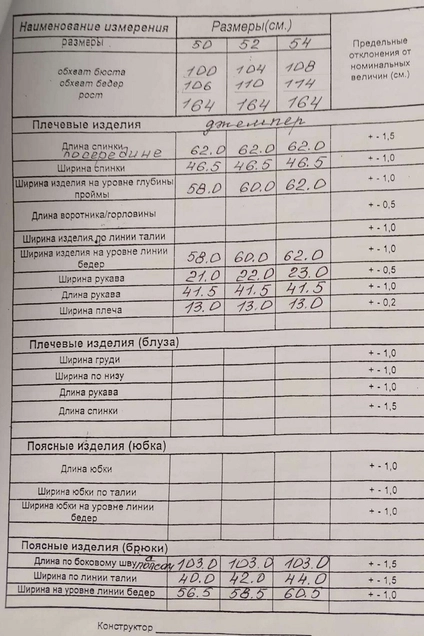 Наименование измерения Размеры(см.) Предельные отклонения от номинальных величин (см.)
размеры 50 52 54
обхват бюста 100 104 108
обхват бедер 106 110 114
рост 164 164 164
Плечевые изделия джемпер
Длина спинки посередине 62.0 62.0 62.0 + - 1,5
Ширина спинки 46.5 46.5 46.5 + - 1,0
Ширина изделия на уровне глубины проймы 58.0 60.0 62.0 + - 1,0
Длина воротника/горловины + - 0,5
Ширина изделия по линии талии + - 1,0
Ширина изделия на уровне линии бедер 58.0 60.0 62.0 + - 1,0
Ширина рукава 21.0 22.0 23.0 + - 0,5
Длина рукава 41.5 41.5 41.5 + - 1,0
Ширина плеча 13.0 13.0 13.0 + - 0,2
Плечевые изделия (блуза)
Ширина груди + - 1,0
Ширина по низу + - 1,0
Длина рукава + - 1,0
Длина спинки + - 1,5
Поясные изделия (юбка)
Длина юбки + - 1,0
Ширина юбки по талии + - 1,0
Ширина юбки на уровне линии бедер + - 1,0
Поясные изделия (брюки)
Длина по боковому шву 103.0 103.0 103.0 + - 1,5
Ширина по линии талии 40.0 42.0 44.0 + - 1,5
Ширина на уровне линии бедер 56.5 58.5 60.5 + - 1,0
Конструктор